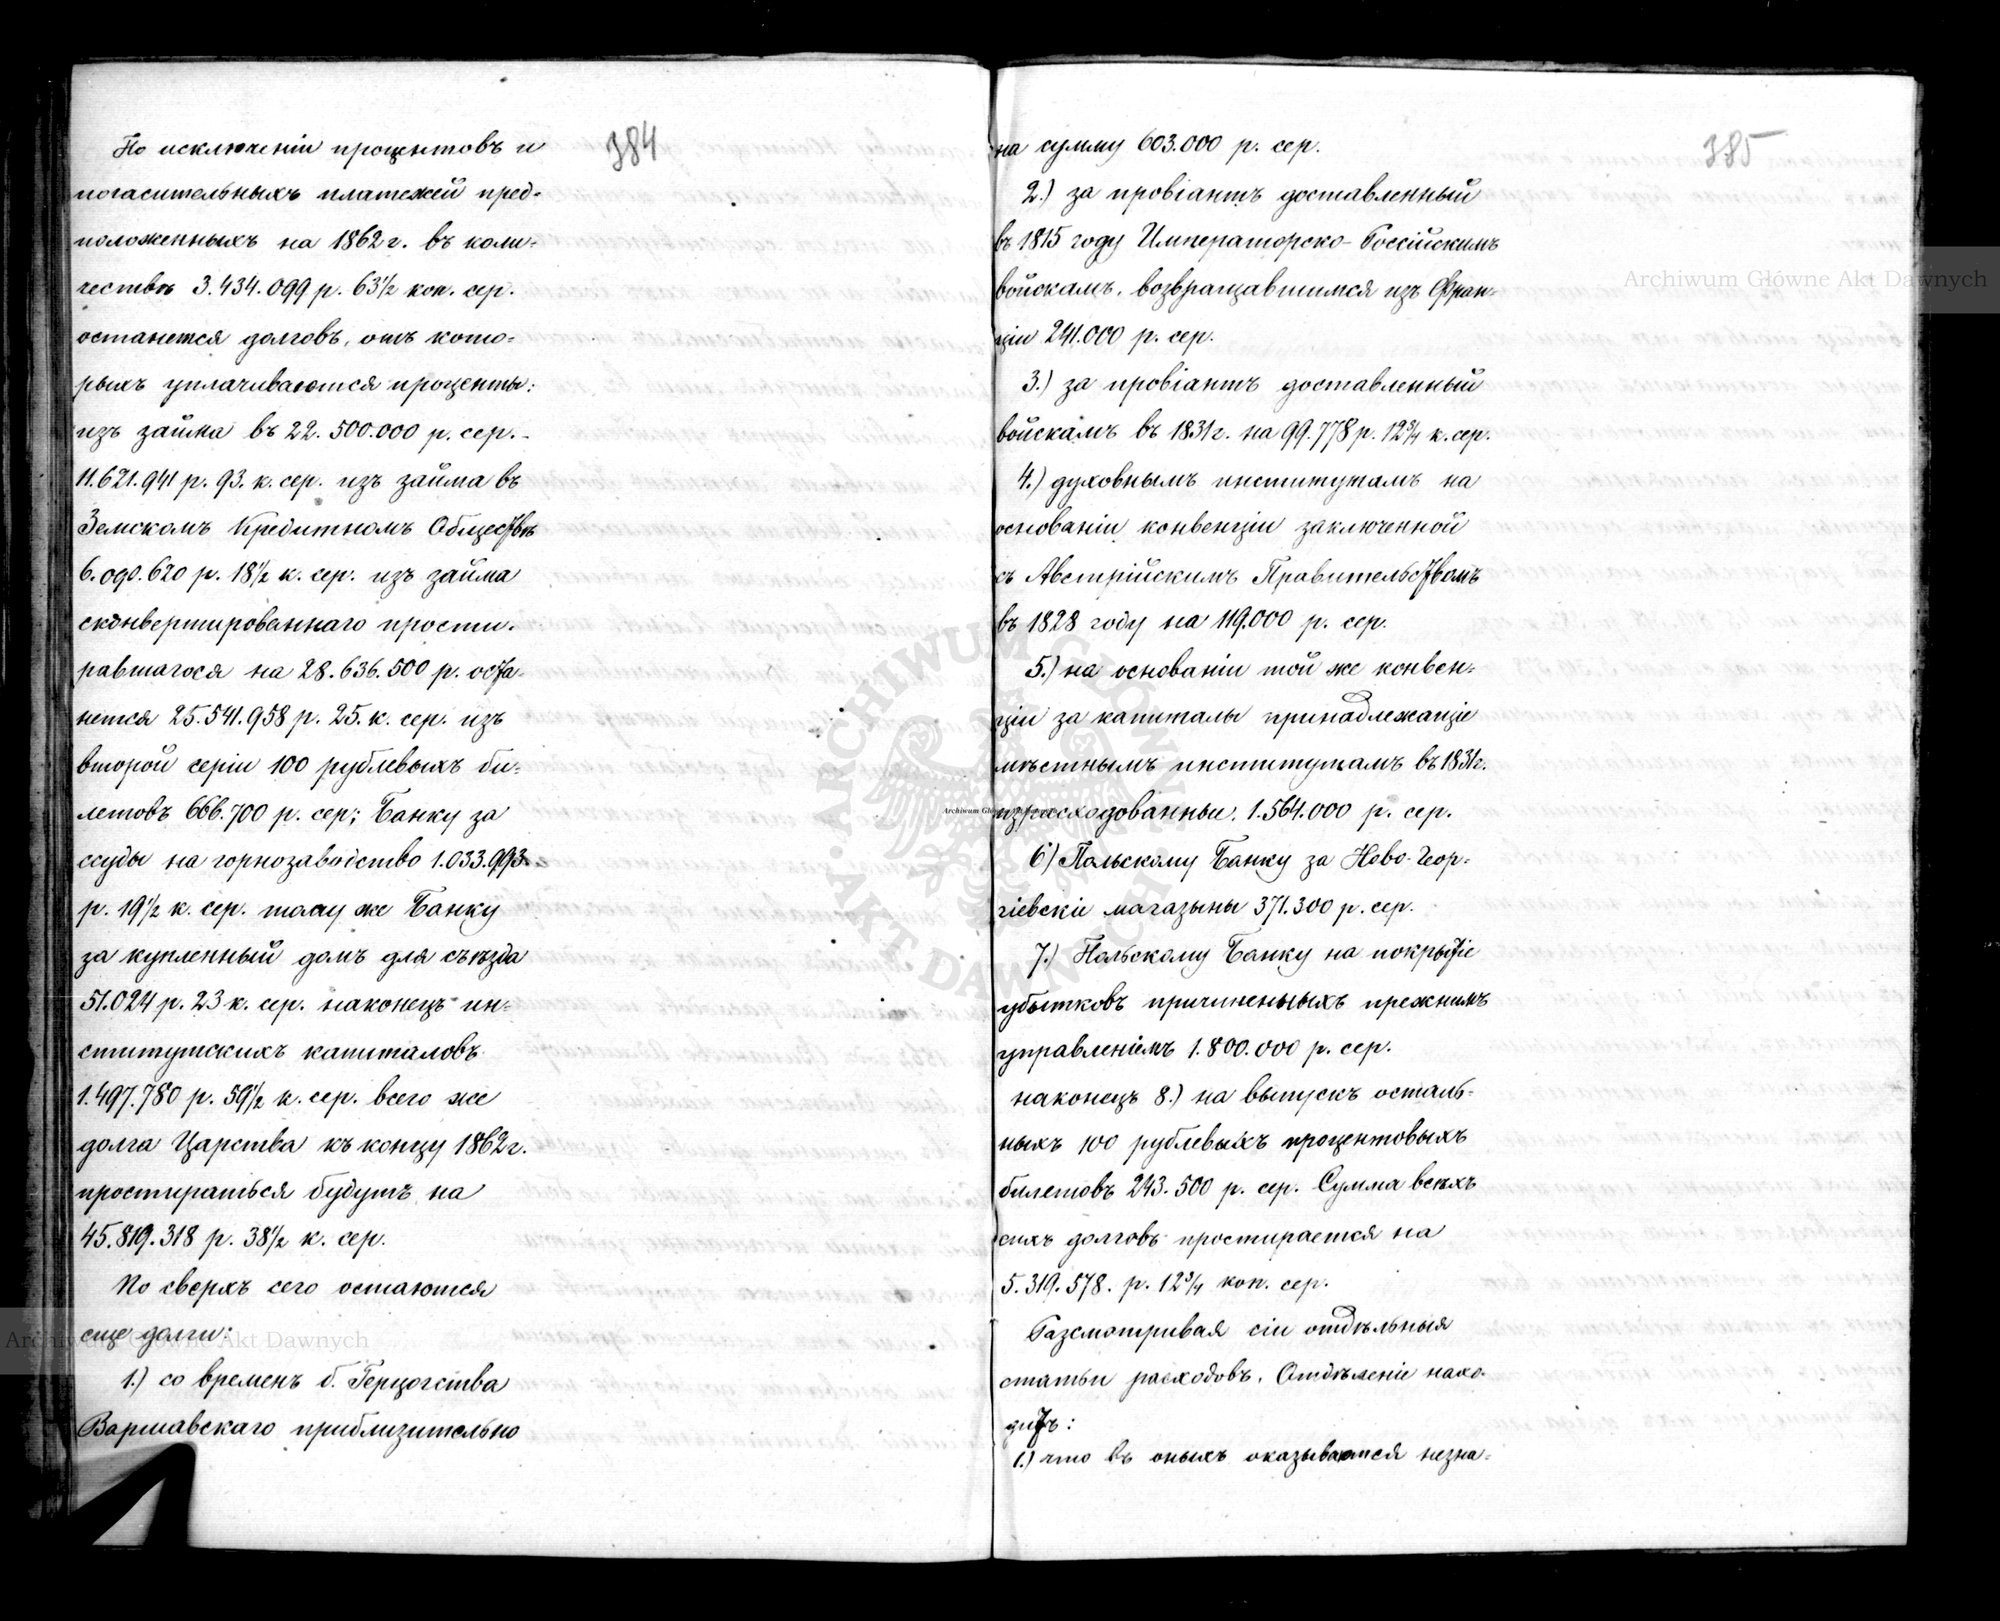 384
По исключеніи процентовъ и
погасительныхъ платежей пред-
положенныхъ на 1862 г. въ коли-
чествѣ 3.434.099 р. 63½ коп. сер.
останется долговъ, отъ кото-
рыхъ уплачиваются проценты:
изъ займа въ 22.500.000 р. сер. -
11.621.941 р. 93. к. сер. изъ займа въ
Земскомъ Кредитномъ Обществѣ
6.090.620 р. 18½ к. сер. изъ займа
сконвертированнаго прости-
равшагося на 28.636.500 р. оста-
нется 25.541.958 р. 25. к. сер. изъ
второй серіи 100 рублевыхъ би-
летовъ 666.700 р. сер; Банку за
ссуды на горнозаводство 1.033.993
р. 19½ к. сер. тому же Банку
за купленный домъ для съѣзда
51.024 р. 23 к. сер. наконецъ ин-
ститутскихъ капиталовъ
1.497.780 р. 59½ к. сер. всего же
долга Царства къ концу 1862 г.
простираться будутъ на
45.819.318 р. 38½ к. сер.
Но сверхъ сего остаются
еще долги:
1.) со временъ б. Герцогства
Варшавскаго приблизительно
385
на сумму 603.000 р. сер.
2.) за провіантъ доставленный
въ 1815 году Императорско-Россійскимъ
войскамъ, возвращавшимся изъ Фран-
ціи 241.000 р. сер.
3.) за провіантъ доставленный
войскамъ въ 1831 г. на 99.778 р. 12¾ к. сер.
4.) духовнымъ институтамъ на
основаніи конвенціи заключенной
съ Австрійскимъ Правительствомъ
въ 1828 году на 119.000 р. сер.
5.) на основаніи той же конвен-
ціи за капиталы принадлежащіе
мѣстнымъ институтамъ въ 1831 г.
израсходованны, 1.564.000 р. сер.
6) Польскому Банку за Ново-Геор-
гіевскіе магазыны 371.300 р. сер.
7.) Польскому Банку на покрытіе
убытковъ причиненыхъ прежнимъ
управленіемъ 1.800.000 р. сер.
наконецъ 8.) на выпускъ осталь-
ныхъ 100 рублевыхъ процентовыхъ
билетовъ 243.500 р. сер. Сумма всѣхъ
сихъ долговъ простирается на
5.319.578. р. 12¾ коп. сер.
Разсмотривая сіи отдѣльныя
статьи расходовъ, Отдѣленіе нахо-
дитъ:
1.) что въ оныхъ оказываются незна-
Archiwum Główne Akt Dawnych
Archiwum Główne Akt Dawnych
ARCHIWUM GŁÓWNE AKT DAWNYCH